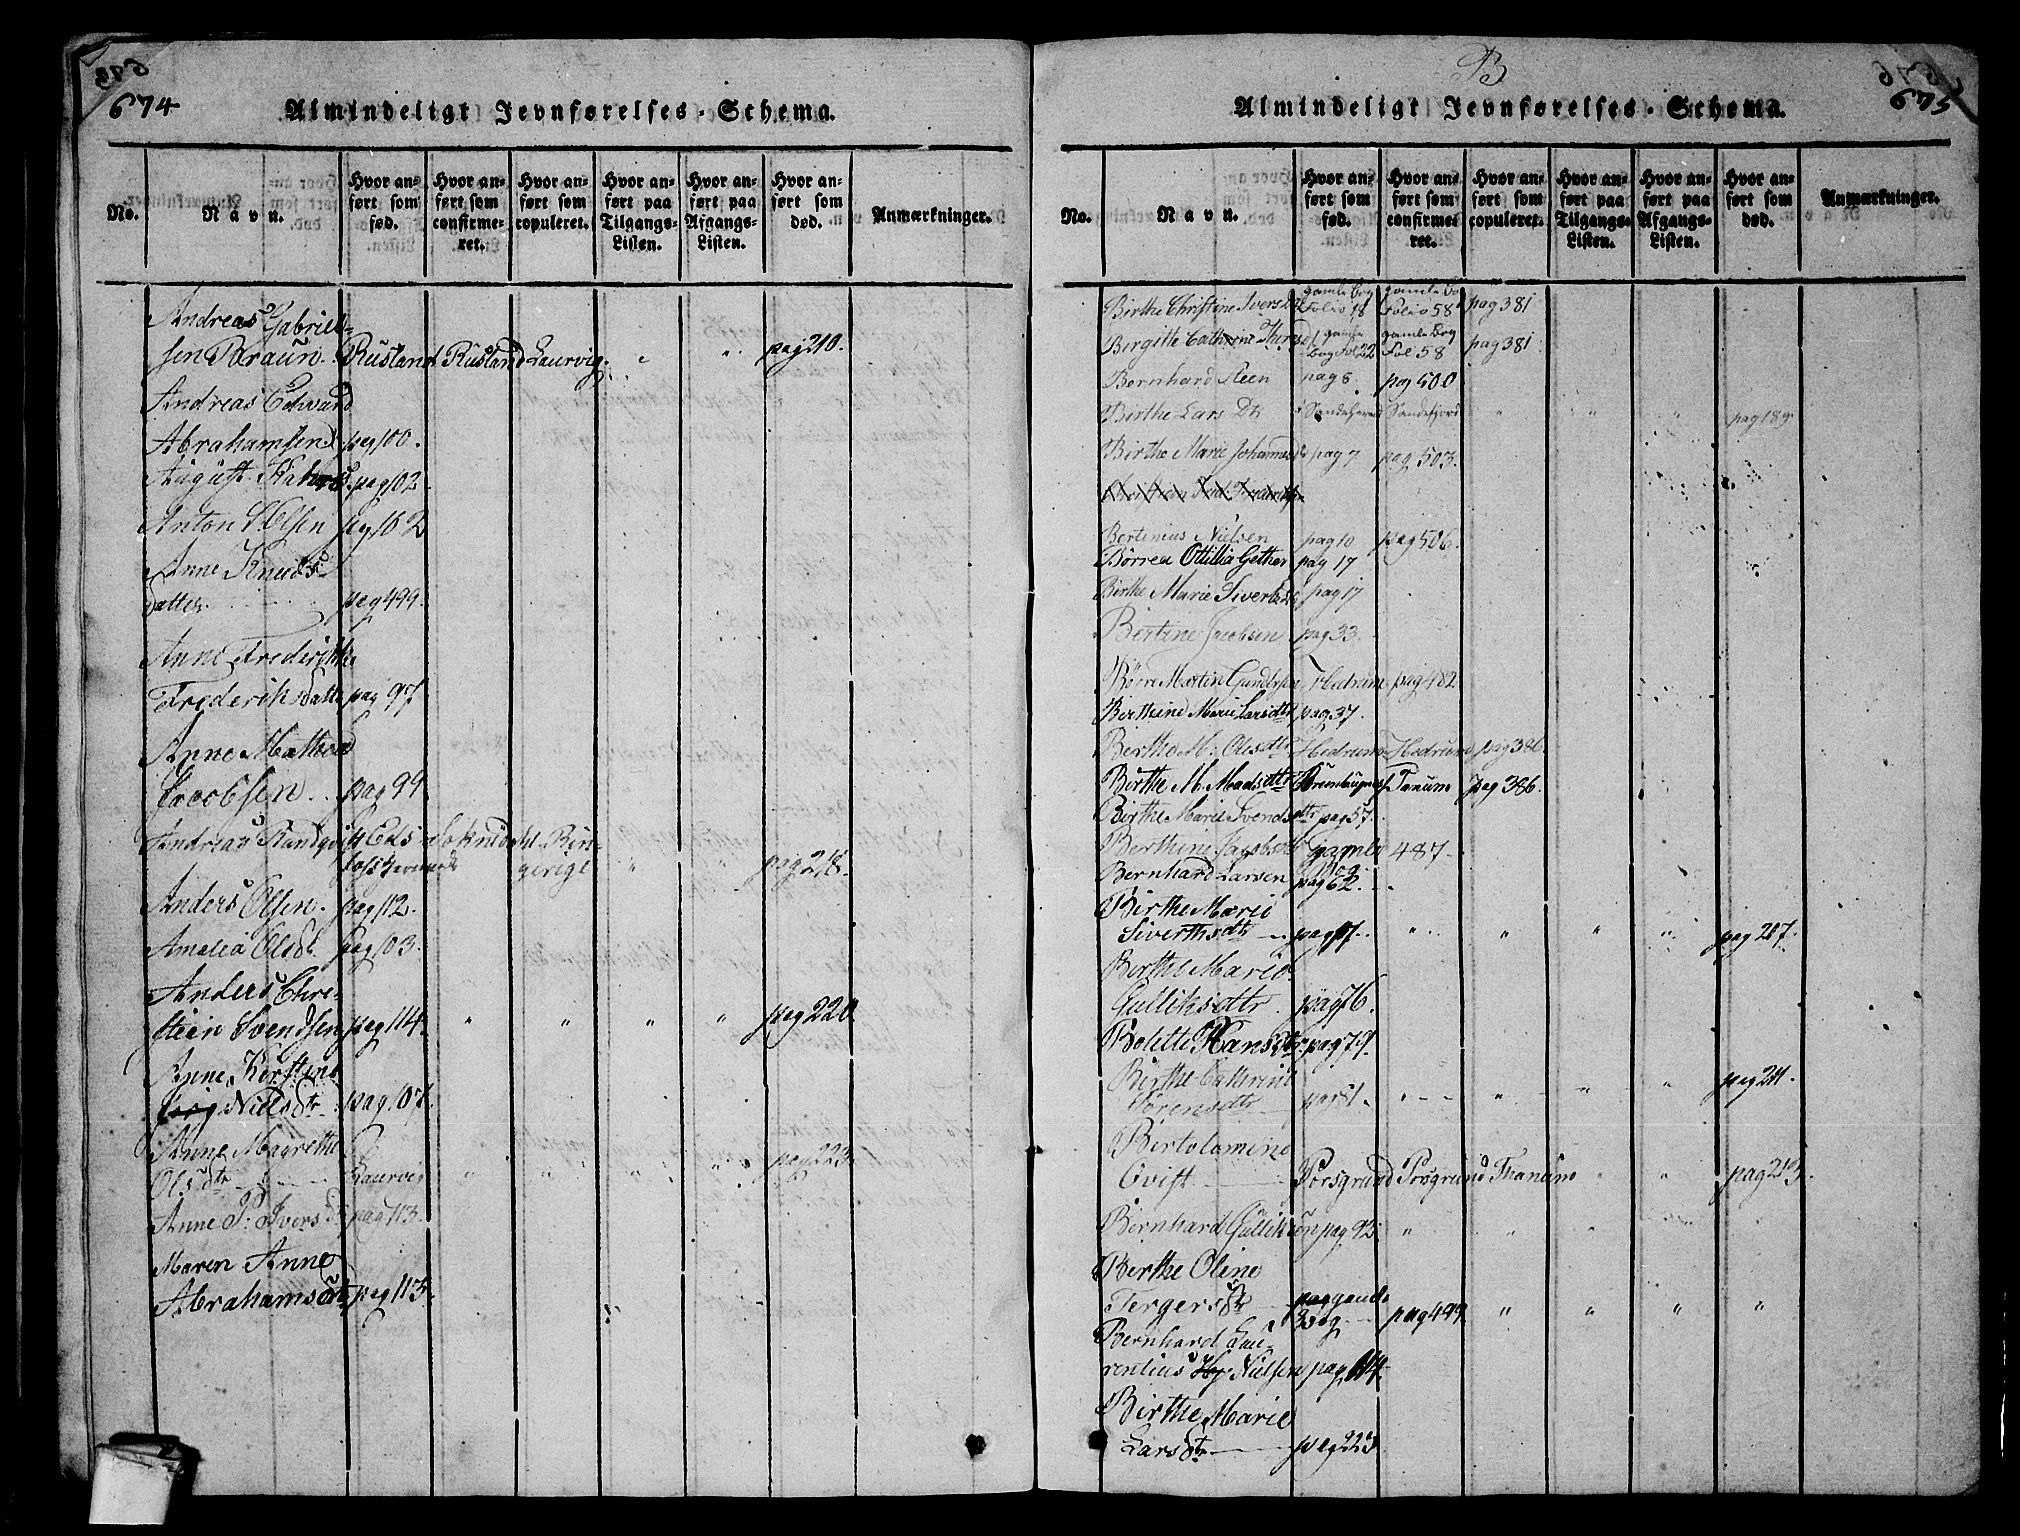 674
Almindeligt Jevnførelses-Schema.
No. Navn. Hvor anført som fød. Hvor anført som confirmeret. Hvor anført som copuleret. Hvor anført paa Tilgangs-Listen. Hvor anført paa Afgangs-Listen. Hvor anført som død. Anmærkninger.
Andreas Gabriel-
sen Paraün Rüsland Rüsland Laurvig " " pag 210.
Andreas Edvard
Abrahamsen pag 100.
August pag 102.
Anton Olsen pag 102
Anne Knuds-
datter pag 499.
Anne Frederikke
Frederiksdatt pag 97
Anne Mathea
Jacobsen pag 99
Andreas Eds- Soknedahl Rin-
gerige " pag 218.
Anders Olsen. pag 112.
Amalia Olsdtr pag 103.
Anders Chri-
stein Svendsen pag 114. " " " " pag 220
Anne Kirstine
Nilsdtr pag 107.
Anne Magrethe
Olsdtr Laurvig " " " " pag 223
Anne P: Iversdtr pag 113.
Maren Anne
Abrahamsdtr pag 113.
B
675
Almindeligt Jevnførelses-Schema.
No. Navn. Hvor anført som fød. Hvor anført som confirmeret. Hvor anført som copuleret. Hvor anført paa Tilgangs-Listen. Hvor anført paa Afgangs-Listen. Hvor anført som død. Anmærkninger.
gamle Bog gamle Bo
Birthe Christine Iversdtr Folio 18 Folio 58 pag 381
Birgitte Cathrine gamle Bog Fol 22 gamle Bog Fol 58 pag 381
Bernhard Steen pag 8 pag 500
Birthe Lars Dtr Sandefjord Sandefjord " " " pag 189
Birthe Marie Johannesd pag 7 pag 503.
Bertinius Nielsen pag 10 pag 506.
Børrea Ottillia Gether pag 17
Birthe Marie Sivertsdtr pag 17
Bertine Jacobsen pag 33.
Børre Martin Gundersen Hedrum pag 482
Birthine Marie Larsdtr pag 37.
Berthe M: Olesdtr Hedrum Hedrum pag 386
Birthe M. Madsdtr Tanum pag 386.
Birthe Marie Svendsdtr pag 57.
Berthine Jacobsdtr gamle 487.
Bernhard Larsen pag 62.
Birthe Marie
Siverthsdtr pag 17. " " " " pag 207.
Birthe Marie
Gulliksdtr. pag 76.
Bolette Hansdtr. pag 79.
Birthe Cathrine
Sørensdtr pag 81. " " " " pag 211.
Bertolamine
Qvist Porsgrund Porsgrund Thanum " " pag 213.
Bernhard Gulliksen pag 93 " " "
Birthe Oline
Tergersdtr gamle
Bog pag 499 " " " "
Bernhard Lau-
rentius Nielsen pag 114.
Birthe Marie
Larsdtr pag 223.